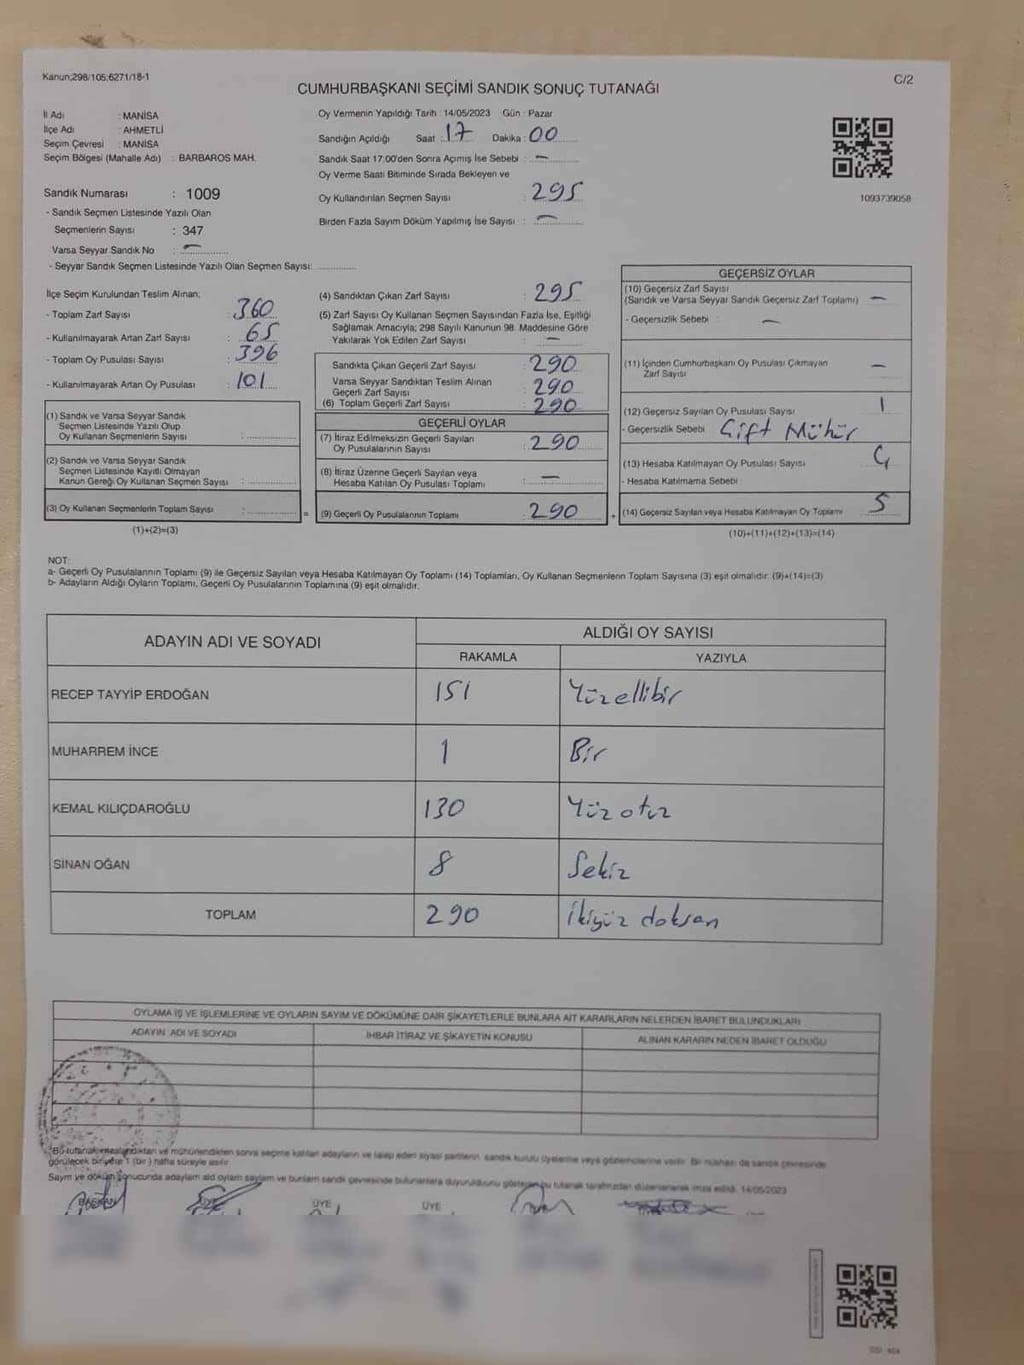 Kanun;298/105;6271/18-1
C/2
CUMHURBAŞKANI SEÇİMİ SANDIK SONUÇ TUTANAĞI
İl Adı : MANİSA
İlçe Adı : AHMETLİ
Seçim Çevresi : MANİSA
Seçim Bölgesi (Mahalle Adı) : BARBAROS MAH.
Sandık Numarası : 1009
- Sandık Seçmen Listesinde Yazılı Olan
Seçmenlerin Sayısı : 347
Varsa Seyyar Sandık No : —
- Seyyar Sandık Seçmen Listesinde Yazılı Olan Seçmen Sayısı:
Oy Vermenin Yapıldığı Tarih : 14/05/2023 Gün : Pazar
Sandığın Açıldığı Saat : 17 Dakika : 00
Sandık Saat 17:00'den Sonra Açımış İse Sebebi : —
Oy Verme Saati Bitiminde Sırada Bekleyen ve
Oy Kullandırılan Seçmen Sayısı : 295
Birden Fazla Sayım Döküm Yapılmış İse Sayısı : —
1093739058
İlçe Seçim Kurulundan Teslim Alınan;
- Toplam Zarf Sayısı : 360
- Kullanılmayarak Artan Zarf Sayısı : 65
- Toplam Oy Pusulası Sayısı : 396
- Kullanılmayarak Artan Oy Pusulası : 101
(1) Sandık ve Varsa Seyyar Sandık
Seçmen Listesinde Yazılı Olup
Oy Kullanan Seçmenlerin Sayısı :
(2) Sandık ve Varsa Seyyar Sandık
Seçmen Listesinde Kayıtlı Olmayan
Kanun Gereği Oy Kullanan Seçmen Sayısı :
(3) Oy Kullanan Seçmenlerin Toplam Sayısı :
(1)+(2)=(3)
(4) Sandıktan Çıkan Zarf Sayısı : 295
(5) Zarf Sayısı Oy Kullanan Seçmen Sayısından Fazla İse, Eşitliği
Sağlamak Amacıyla; 298 Sayılı Kanunun 98. Maddesine Göre
Yakılarak Yok Edilen Zarf Sayısı : —
Sandıkta Çıkan Geçerli Zarf Sayısı : 290
Varsa Seyyar Sandıktan Teslim Alınan
Geçerli Zarf Sayısı : 290
(6) Toplam Geçerli Zarf Sayısı : 290
GEÇERLİ OYLAR
(7) İtiraz Edilmeksizin Geçerli Sayılan
Oy Pusulalarının Sayısı : 290
(8) İtiraz Üzerine Geçerli Sayılan veya
Hesaba Katılan Oy Pusulası Toplamı : —
= (9) Geçerli Oy Pusulalarının Toplamı : 290 +
GEÇERSİZ OYLAR
(10) Geçersiz Zarf Sayısı
(Sandık ve Varsa Seyyar Sandık Geçersiz Zarf Toplamı) —
- Geçersizlik Sebebi : —
(11) İçinden Cumhurbaşkanı Oy Pusulası Çıkmayan
Zarf Sayısı —
(12) Geçersiz Sayılan Oy Pusulası Sayısı 1
- Geçersizlik Sebebi Çift Mühür
(13) Hesaba Katılmayan Oy Pusulası Sayısı 4
- Hesaba Katılmama Sebebi
(14) Geçersiz Sayılan veya Hesaba Katılmayan Oy Toplamı 5
(10)+(11)+(12)+(13)=(14)
NOT:
a- Geçerli Oy Pusulalarının Toplamı (9) ile Geçersiz Sayılan veya Hesaba Katılmayan Oy Toplamı (14) Toplamları, Oy Kullanan Seçmenlerin Toplam Sayısına (3) eşit olmalıdır. (9)+(14)=(3)
b- Adayların Aldığı Oyların Toplamı, Geçerli Oy Pusulalarının Toplamına (9) eşit olmalıdır.
ADAYIN ADI VE SOYADI ALDIĞI OY SAYISI
RAKAMLA YAZIYLA
RECEP TAYYİP ERDOĞAN 151 Yüzellibir
MUHARREM İNCE 1 Bir
KEMAL KILIÇDAROĞLU 130 Yüz otuz
SİNAN OĞAN 8 Sekiz
TOPLAM 290 İkiyüz doksan
OYLAMA İŞ VE İŞLEMLERİNE VE OYLARIN SAYIM VE DÖKÜMÜNE DAİR ŞİKAYETLERLE BUNLARA AİT KARARLARIN NELERDEN İBARET BULUNDUKLARI
ADAYIN ADI VE SOYADI İHBAR İTİRAZ VE ŞİKAYETİN KONUSU ALINAN KARARIN NEDEN İBARET OLDUĞU
görülecek bir yere 1 (bir) hafta süreyle asılır.
Sayım ve döküm sonucunda adayların ald oyların sayılan ve bunların sandık çevresinde bulunanlara duyurulduğunu gösteren bu tutanak tarafımızdan düzenlenerek imza edildi. 14/05/2023
BAŞKAN ÜYE ÜYE ÜYE